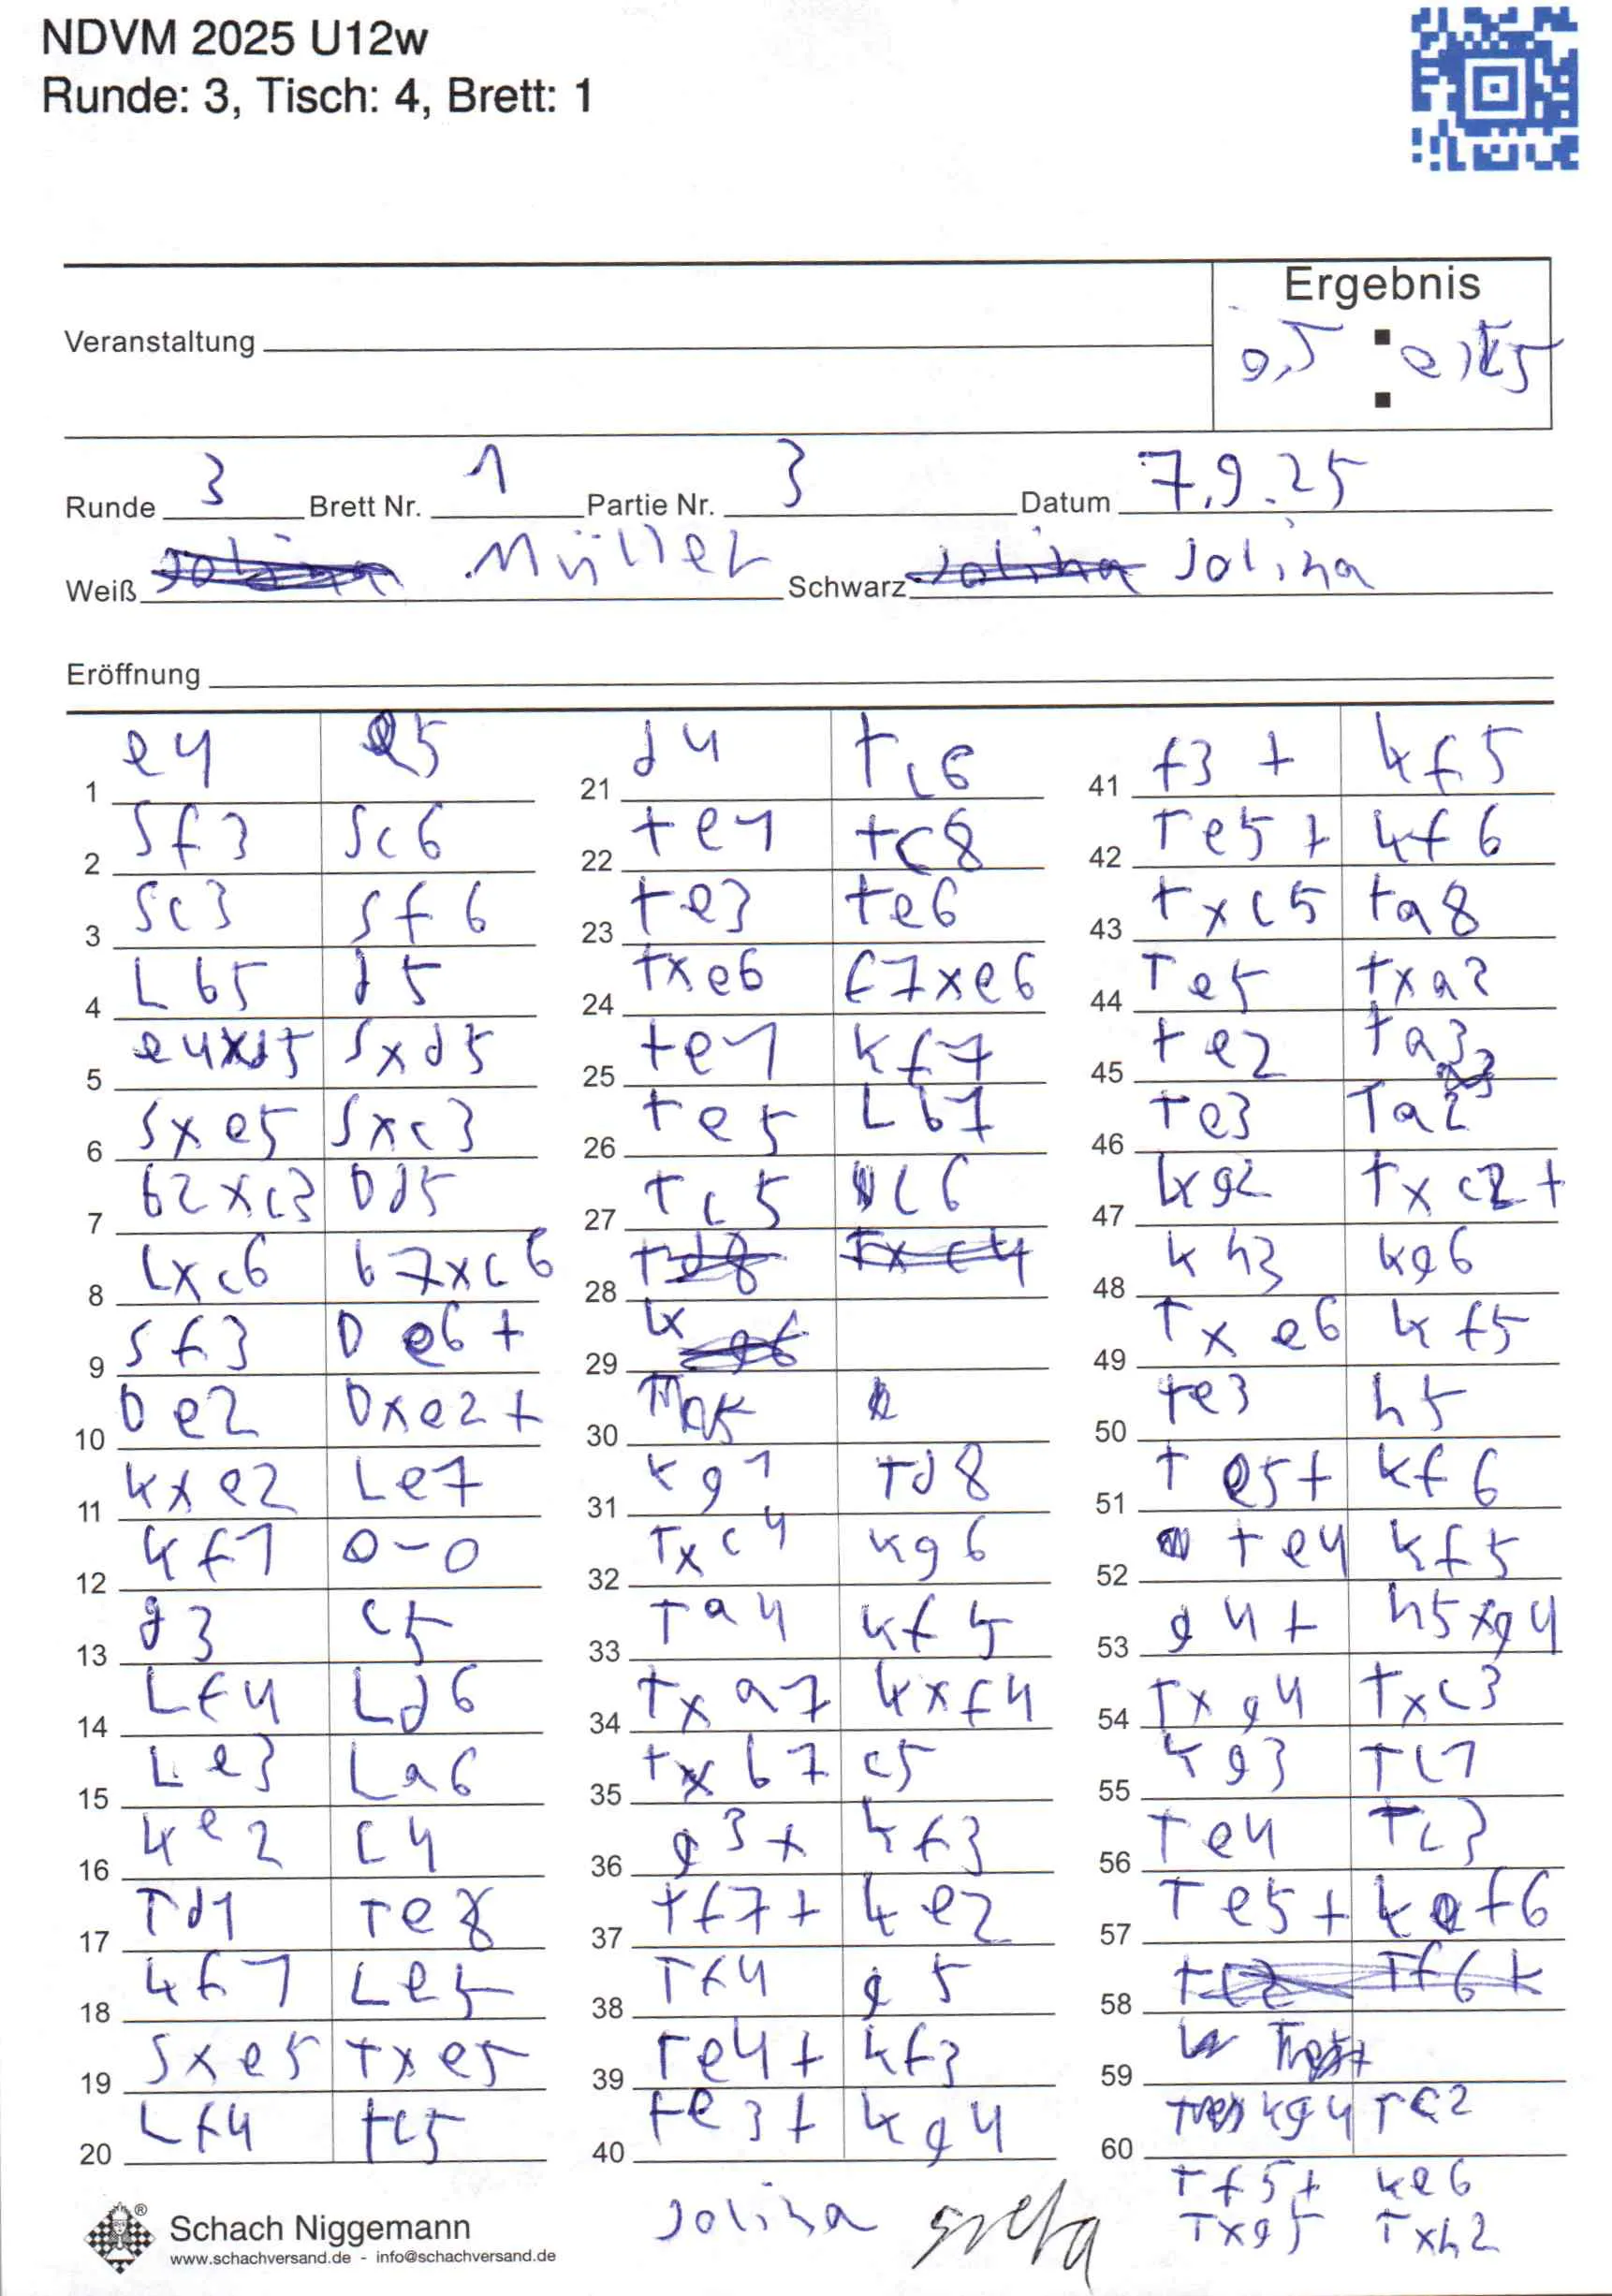 NDVM 2025 U12w
Runde: 3, Tisch: 4, Brett: 1
Ergebnis
Veranstaltung 0,5 : 0,5
Runde 3 Brett Nr. 1 Partie Nr. 3 Datum 7.9.25
Weiß Müller Schwarz Jolina
Eröffnung
1 e4 e5
2 Sf3 Sc6
3 Sc3 Sf6
4 Lb5 d5
5 e4xd5 Sxd5
6 Sxe5 Sxc3
7 b2xc3 Dd5
8 Lxc6 b7xc6
9 Sf3 De6+
10 De2 Dxe2+
11 kxe2 Le7
12 kf1 0-0
13 d3 c5
14 Lf4 Ld6
15 Le3 La6
16 ke2 c4
17 Td1 Te8
18 kf1 Le5
19 Sxe5 Txe5
20 Lf4 tc5
21 d4 tc6
22 te1 tc8
23 te3 te6
24 txe6 f7xe6
25 te1 kf7
26 te5 Lb7
27 Tc5 c6
28
29
30
31 kg1 Td8
32 Txc4 kg6
33 Ta4 kf5
34 Txa7 kxf4
35 txb7 c5
36 g3+ kf3
37 tf7+ ke2
38 Tf4 g5
39 Te4+ kf3
40 te3+ kg4
41 f3+ kf5
42 Te5+ kf6
43 txc5 ta8
44 Te5 txa2
45 te2 ta3
46 Te3 Ta2
47 kg2 txc2+
48 kh3 kg6
49 Txe6 kf5
50 te3 h5
51 te5+ kf6
52 te4 kf5
53 g4+ h5xg4
54 Txg4 txc3
55 kg3 Tc1
56 Te4 Tc3
57 Te5+ kf6
58
59
60 kg4 Tc2
Tf5+ ke6
Txg5 Txh2
Jolina Greta
Schach Niggemann
www.schachversand.de - info@schachversand.de